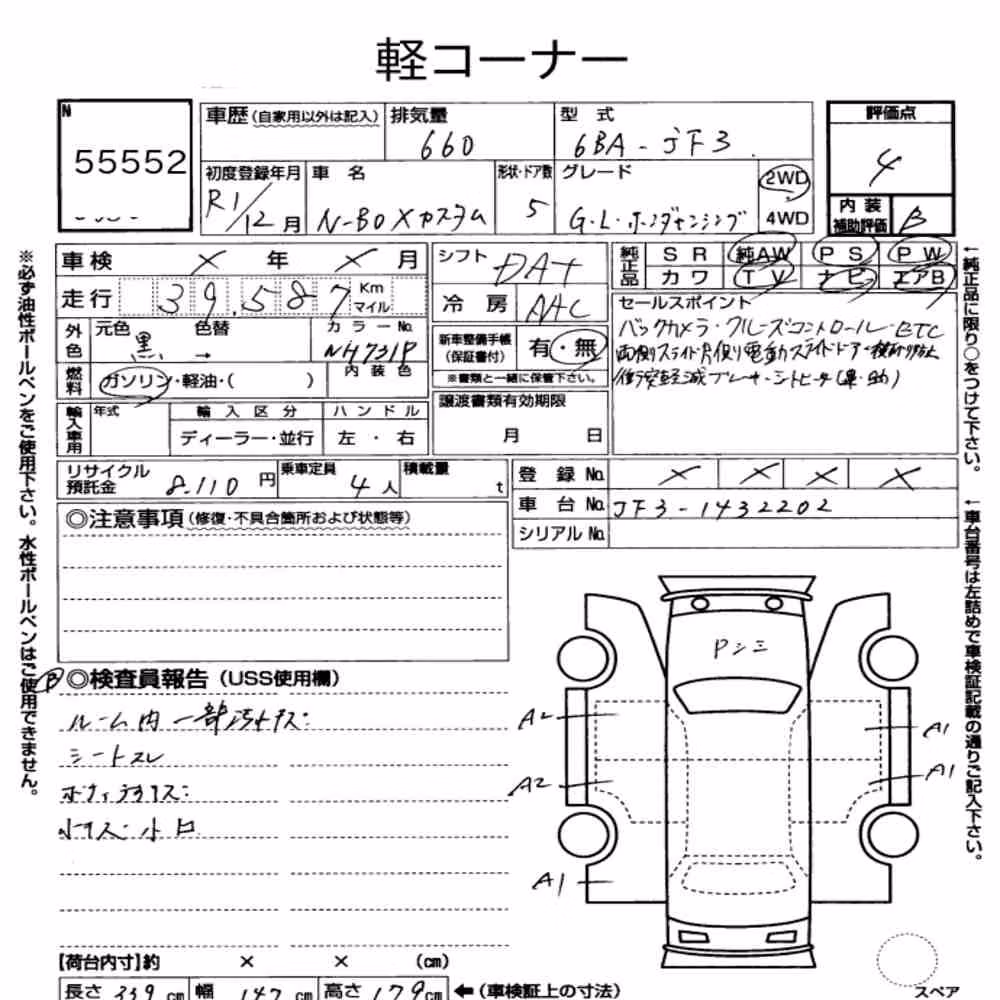 軽コーナー
N
55552
車歴(自家用以外は記入)
排気量
660
型 式
6BA-JF3
評価点
4
初度登録年月
R1/12月
車 名
N-BOXカスタム
形状・ドア数
5
グレード
G・L・ホンダセンシング
2WD
4WD
内 装
補助評価
B
車検 × 年 × 月
走行 39,587 Km
マイル
外色
元色 黒
色替 →
カラーNo.
NH731P
燃料
ガソリン・軽油・( )
内 装 色
輸入車用
年式
輸 入 区 分
ディーラー・並行
ハ ン ド ル
左 ・ 右
シフト
DAT
冷 房
AAC
新車整備手帳
(保証書付)
有・無
※書類と一緒に保管下さい。
譲渡書類有効期限
月 日
純正品
S R 純AW P S P W
カワ T V ナビ エアB
セールスポイント
バックカメラ・クルーズコントロール・ETC
両側スライド片側電動スライドドアー
衝突軽減ブレーキ・シートヒータ(運・助)
リサイクル
預託金
8.110 円
乗車定員
4 人
積載量
t
登 録 No. × × × ×
車 台 No. JF3-1432202
シリアル No.
◎注意事項(修復・不具合箇所および状態等)
B
◎検査員報告(USS使用欄)
ルーム内一部汚れキズ:
シートスレ
ボディ
小キズ・小凹
Pシミ
A2
A2
A1
A1
A1
【荷台内寸】約 × × (cm)
長さ 339 cm 幅 147 cm 高さ 179 cm ←(車検証上の寸法)
スペア
※必ず油性ボールペンをご使用下さい。水性ボールペンはご使用できません。
←純正品に限り○をつけて下さい。
←車台番号は左詰めで車検証記載の通りご記入下さい。